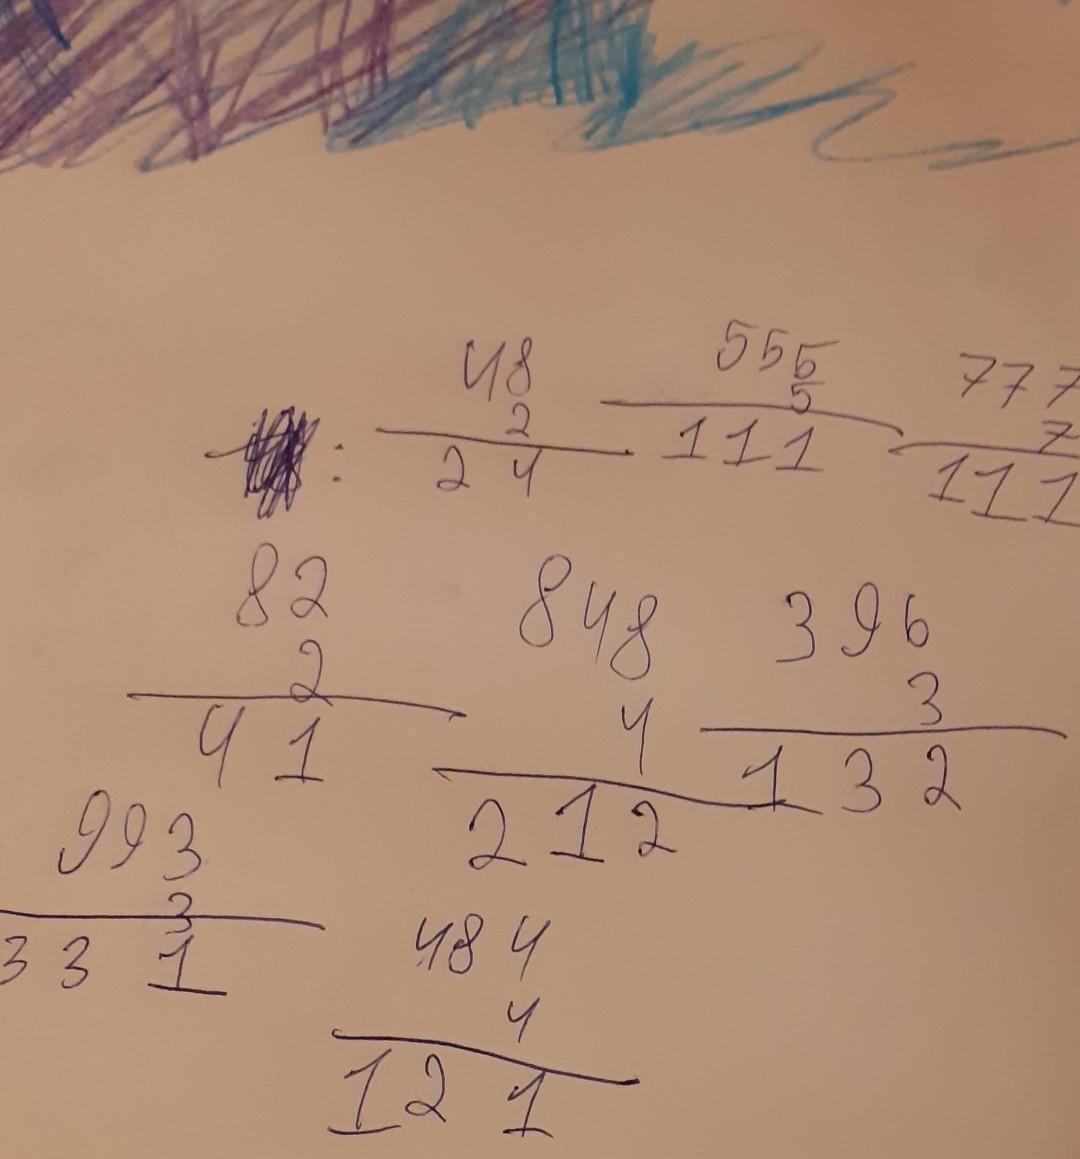 48 555 777
2 5 7
: 24 111 111
82 848 396
2 4 3
41 212 132
993 484
3 4
331 121